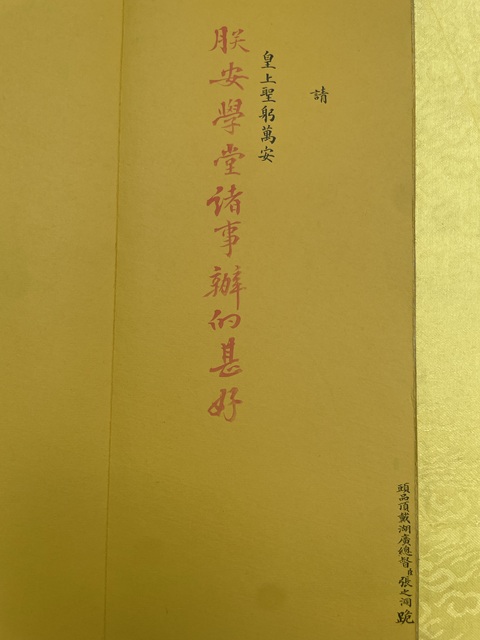 頭品頂戴湖廣總督臣張之洞跪
請
皇上聖躬萬安
朕安學堂諸事辦的甚好